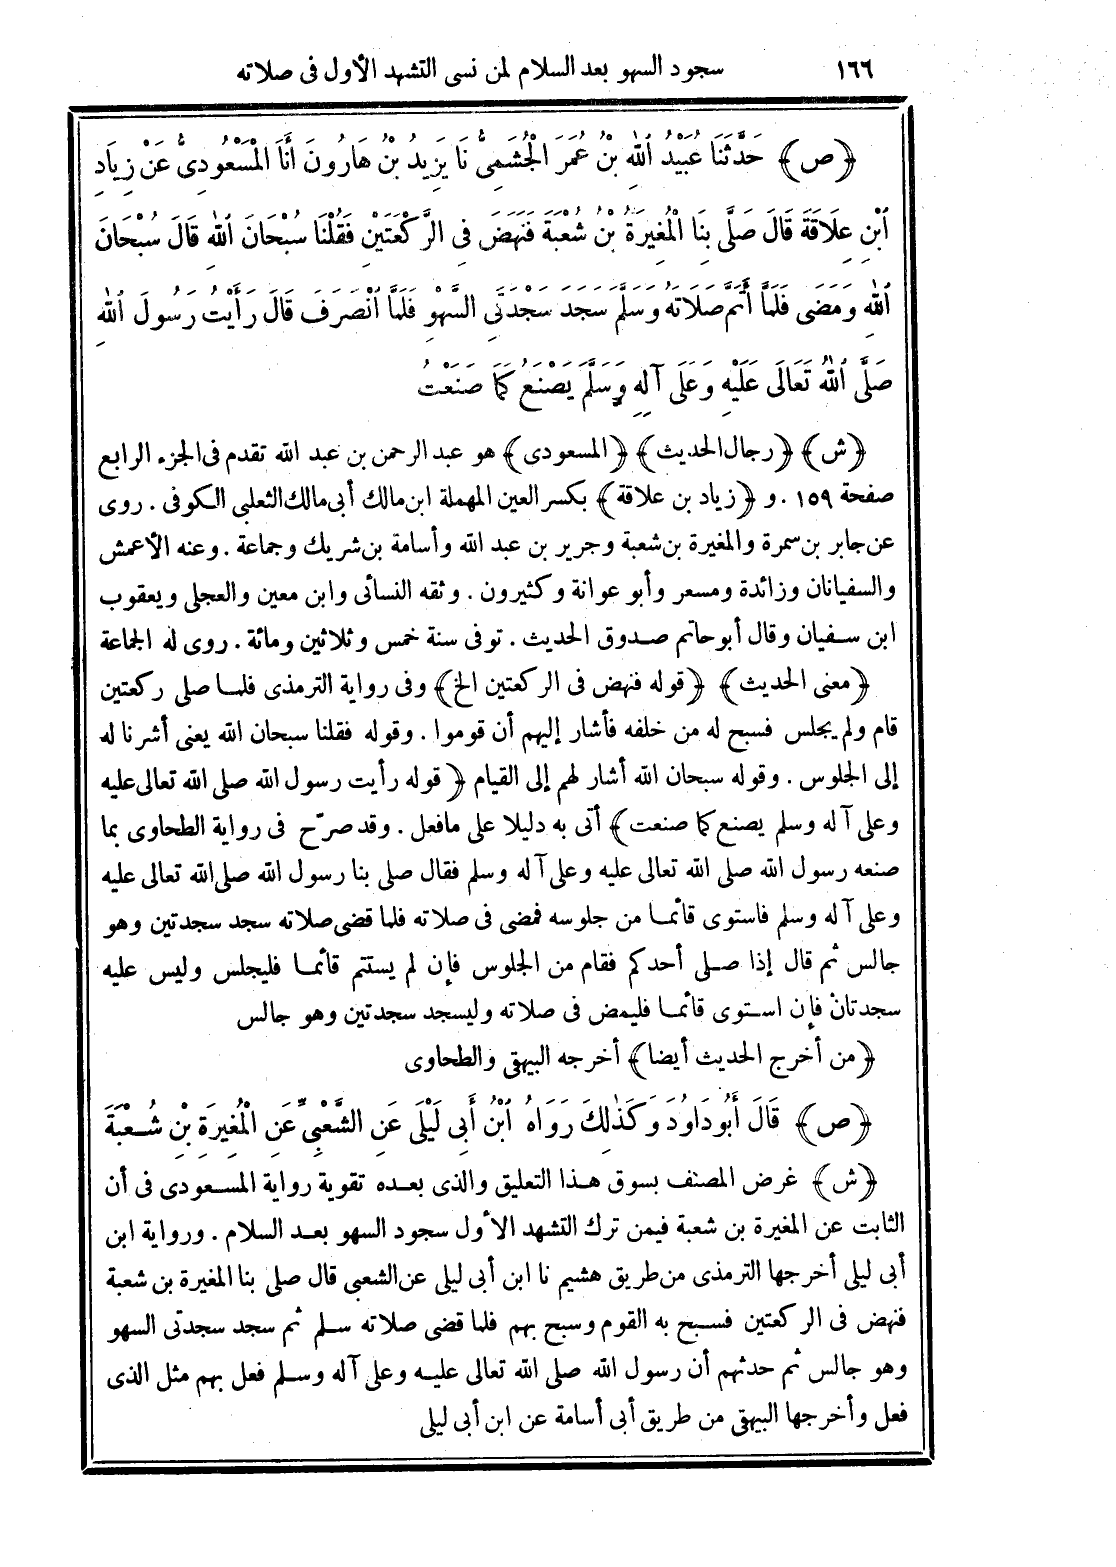 ١٦٦ سجود السهو بعد السلام لمن نسى التشهد الأول فى صلاته
﴿ص﴾ حَدَّثَنَا عُبَيْدُ ٱللهِ بْنُ عُمَرَ الْجُشَمِىُّ نَا يَزِيدُ بْنُ هَارُونَ أَنَا الْمَسْعُودِىُّ عَنْ زِيَادِ
ٱبْنِ عِلَاقَةَ قَالَ صَلَّى بِنَا الْمُغِيرَةُ بْنُ شُعْبَةَ فَنَهَضَ فِى الرَّكْعَتَيْنِ فَقُلْنَا سُبْحَانَ ٱللهِ قَالَ سُبْحَانَ
ٱللهِ وَمَضَى فَلَمَّا أَتَمَّ صَلَاتَهُ وَسَلَّمَ سَجَدَ سَجْدَتَىِ السَّهْوِ فَلَمَّا ٱنْصَرَفَ قَالَ رَأَيْتُ رَسُولَ ٱللهِ
صَلَّى ٱللهُ تَعَالَى عَلَيْهِ وَعَلَى آلِهِ وَسَلَّمَ يَصْنَعُ كَمَا صَنَعْتُ
﴿ش﴾ ﴿رجال الحديث﴾ ﴿المسعودى﴾ هو عبد الرحمن بن عبد الله تقدم فى الجزء الرابع
صفحة ١٥٩ . و ﴿زياد بن علاقة﴾ بكسر العين المهملة ابن مالك أبى مالك الثعلبى الكوفى . روى
عن جابر بن سمرة والمغيرة بن شعبة وجرير بن عبد الله وأسامة بن شريك وجماعة . وعنه الأعمش
والسفيانان وزائدة ومسعر وأبو عوانة وكثيرون . وثقه النسائى وابن معين والعجلى ويعقوب
ابن سفيان وقال أبو حاتم صدوق الحديث . توفى سنة خمس وثلاثين ومائة . روى له الجماعة
﴿معنى الحديث﴾ ﴿قوله فنهض فى الركعتين الخ﴾ وفى رواية الترمذى فلما صلى ركعتين
قام ولم يجلس فسبح له من خلفه فأشار إليهم أن قوموا . وقوله فقلنا سبحان الله يعنى أشرنا له
إلى الجلوس . وقوله سبحان الله أشار لهم إلى القيام ﴿قوله رأيت رسول الله صلى الله تعالى عليه
وعلى آله وسلم يصنع كما صنعت﴾ أتى به دليلا على مافعل . وقد صرّح فى رواية الطحاوى بما
صنعه رسول الله صلى الله تعالى عليه وعلى آله وسلم فقال صلى بنا رسول الله صلى الله تعالى عليه
وعلى آله وسلم فاستوى قائما من جلوسه فمضى فى صلاته فلما قضى صلاته سجد سجدتين وهو
جالس ثم قال إذا صلى أحدكم فقام من الجلوس فإن لم يستتم قائما فليجلس وليس عليه
سجدتان فإن استوى قائما فليمض فى صلاته وليسجد سجدتين وهو جالس
﴿من أخرج الحديث أيضا﴾ أخرجه البيهقى والطحاوى
﴿ص﴾ قَالَ أَبُو دَاوُدَ وَكَذٰلِكَ رَوَاهُ ٱبْنُ أَبِى لَيْلَى عَنِ الشَّعْبِىِّ عَنِ الْمُغِيرَةِ بْنِ شُعْبَةَ
﴿ش﴾ غرض المصنف بسوق هذا التعليق والذى بعده تقوية رواية المسعودى فى أن
الثابت عن المغيرة بن شعبة فيمن ترك التشهد الأول سجود السهو بعد السلام . ورواية ابن
أبى ليلى أخرجها الترمذى من طريق هشيم نا ابن أبى ليلى عن الشعبى قال صلى بنا المغيرة بن شعبة
فنهض فى الركعتين فسبح به القوم وسبح بهم فلما قضى صلاته سلم ثم سجد سجدتى السهو
وهو جالس ثم حدثهم أن رسول الله صلى الله تعالى عليه وعلى آله وسلم فعل بهم مثل الذى
فعل وأخرجها البيهقى من طريق أبى أسامة عن ابن أبى ليلى